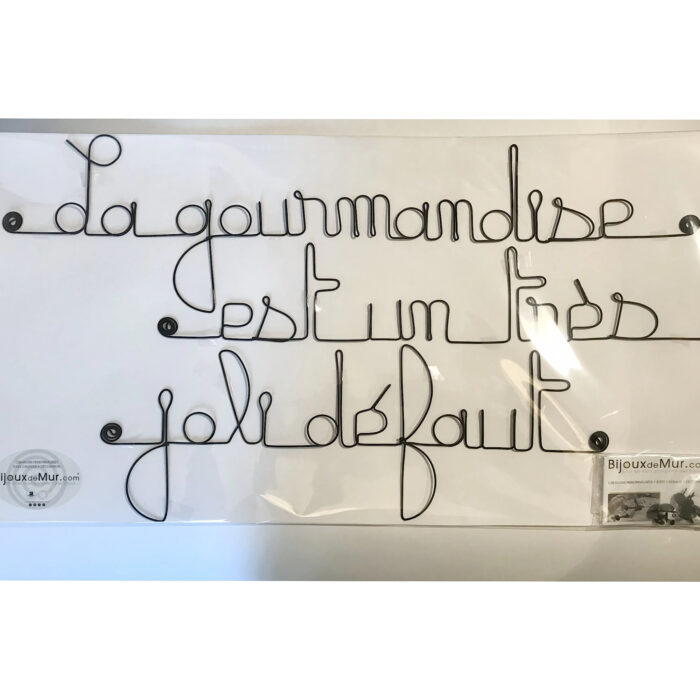 La gourmandise
est un très
joli défaut
BijouxdeMur.com
BijouxdeMur.co